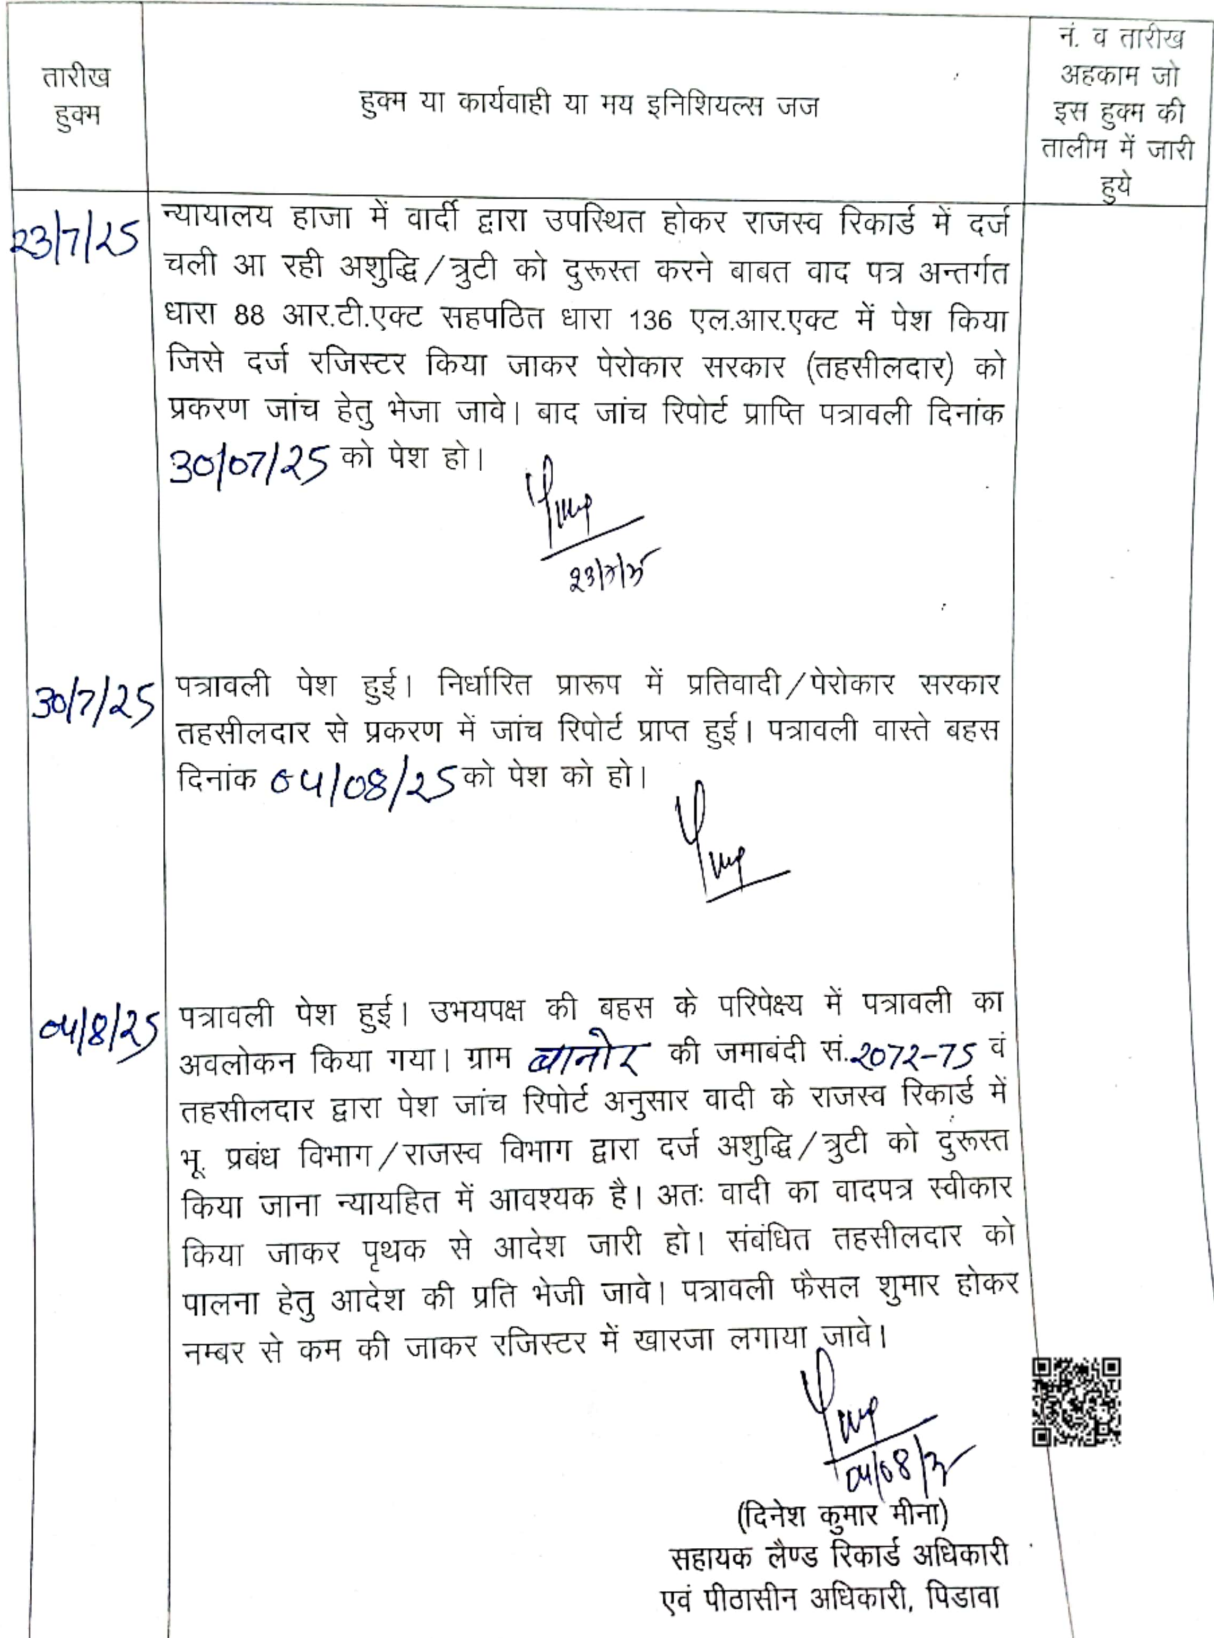 तारीख
हुक्म
हुक्म या कार्यवाही या मय इनिशियल्स जज
नं. व तारीख
अहकाम जो
इस हुक्म की
तालीम में जारी
हुये
23/7/25
न्यायालय हाजा में वार्दी द्वारा उपस्थित होकर राजस्व रिकार्ड में दर्ज
चली आ रही अशुद्धि/त्रुटी को दुरूस्त करने बाबत वाद पत्र अन्तर्गत
धारा 88 आर.टी.एक्ट सहपठित धारा 136 एल.आर.एक्ट में पेश किया
जिसे दर्ज रजिस्टर किया जाकर पेरोकार सरकार (तहसीलदार) को
प्रकरण जांच हेतु भेजा जावे। बाद जांच रिपोर्ट प्राप्ति पत्रावली दिनांक
30/07/25 को पेश हो।
23/7/25
30/7/25
पत्रावली पेश हुई। निर्धारित प्रारूप में प्रतिवादी/पेरोकार सरकार
तहसीलदार से प्रकरण में जांच रिपोर्ट प्राप्त हुई। पत्रावली वास्ते बहस
दिनांक 04/08/25 को पेश को हो।
04/8/25
पत्रावली पेश हुई। उभयपक्ष की बहस के परिपेक्ष्य में पत्रावली का
अवलोकन किया गया। ग्राम बानोर की जमाबंदी सं.2072-75 वं
तहसीलदार द्वारा पेश जांच रिपोर्ट अनुसार वादी के राजस्व रिकार्ड में
भू. प्रबंध विभाग/राजस्व विभाग द्वारा दर्ज अशुद्धि/त्रुटी को दुरूस्त
किया जाना न्यायहित में आवश्यक है। अतः वादी का वादपत्र स्वीकार
किया जाकर पृथक से आदेश जारी हो। संबंधित तहसीलदार को
पालना हेतु आदेश की प्रति भेजी जावे। पत्रावली फैसल शुमार होकर
नम्बर से कम की जाकर रजिस्टर में खारजा लगाया जावे।
04/08/25
(दिनेश कुमार मीना)
सहायक लैण्ड रिकार्ड अधिकारी
एवं पीठासीन अधिकारी, पिडावा